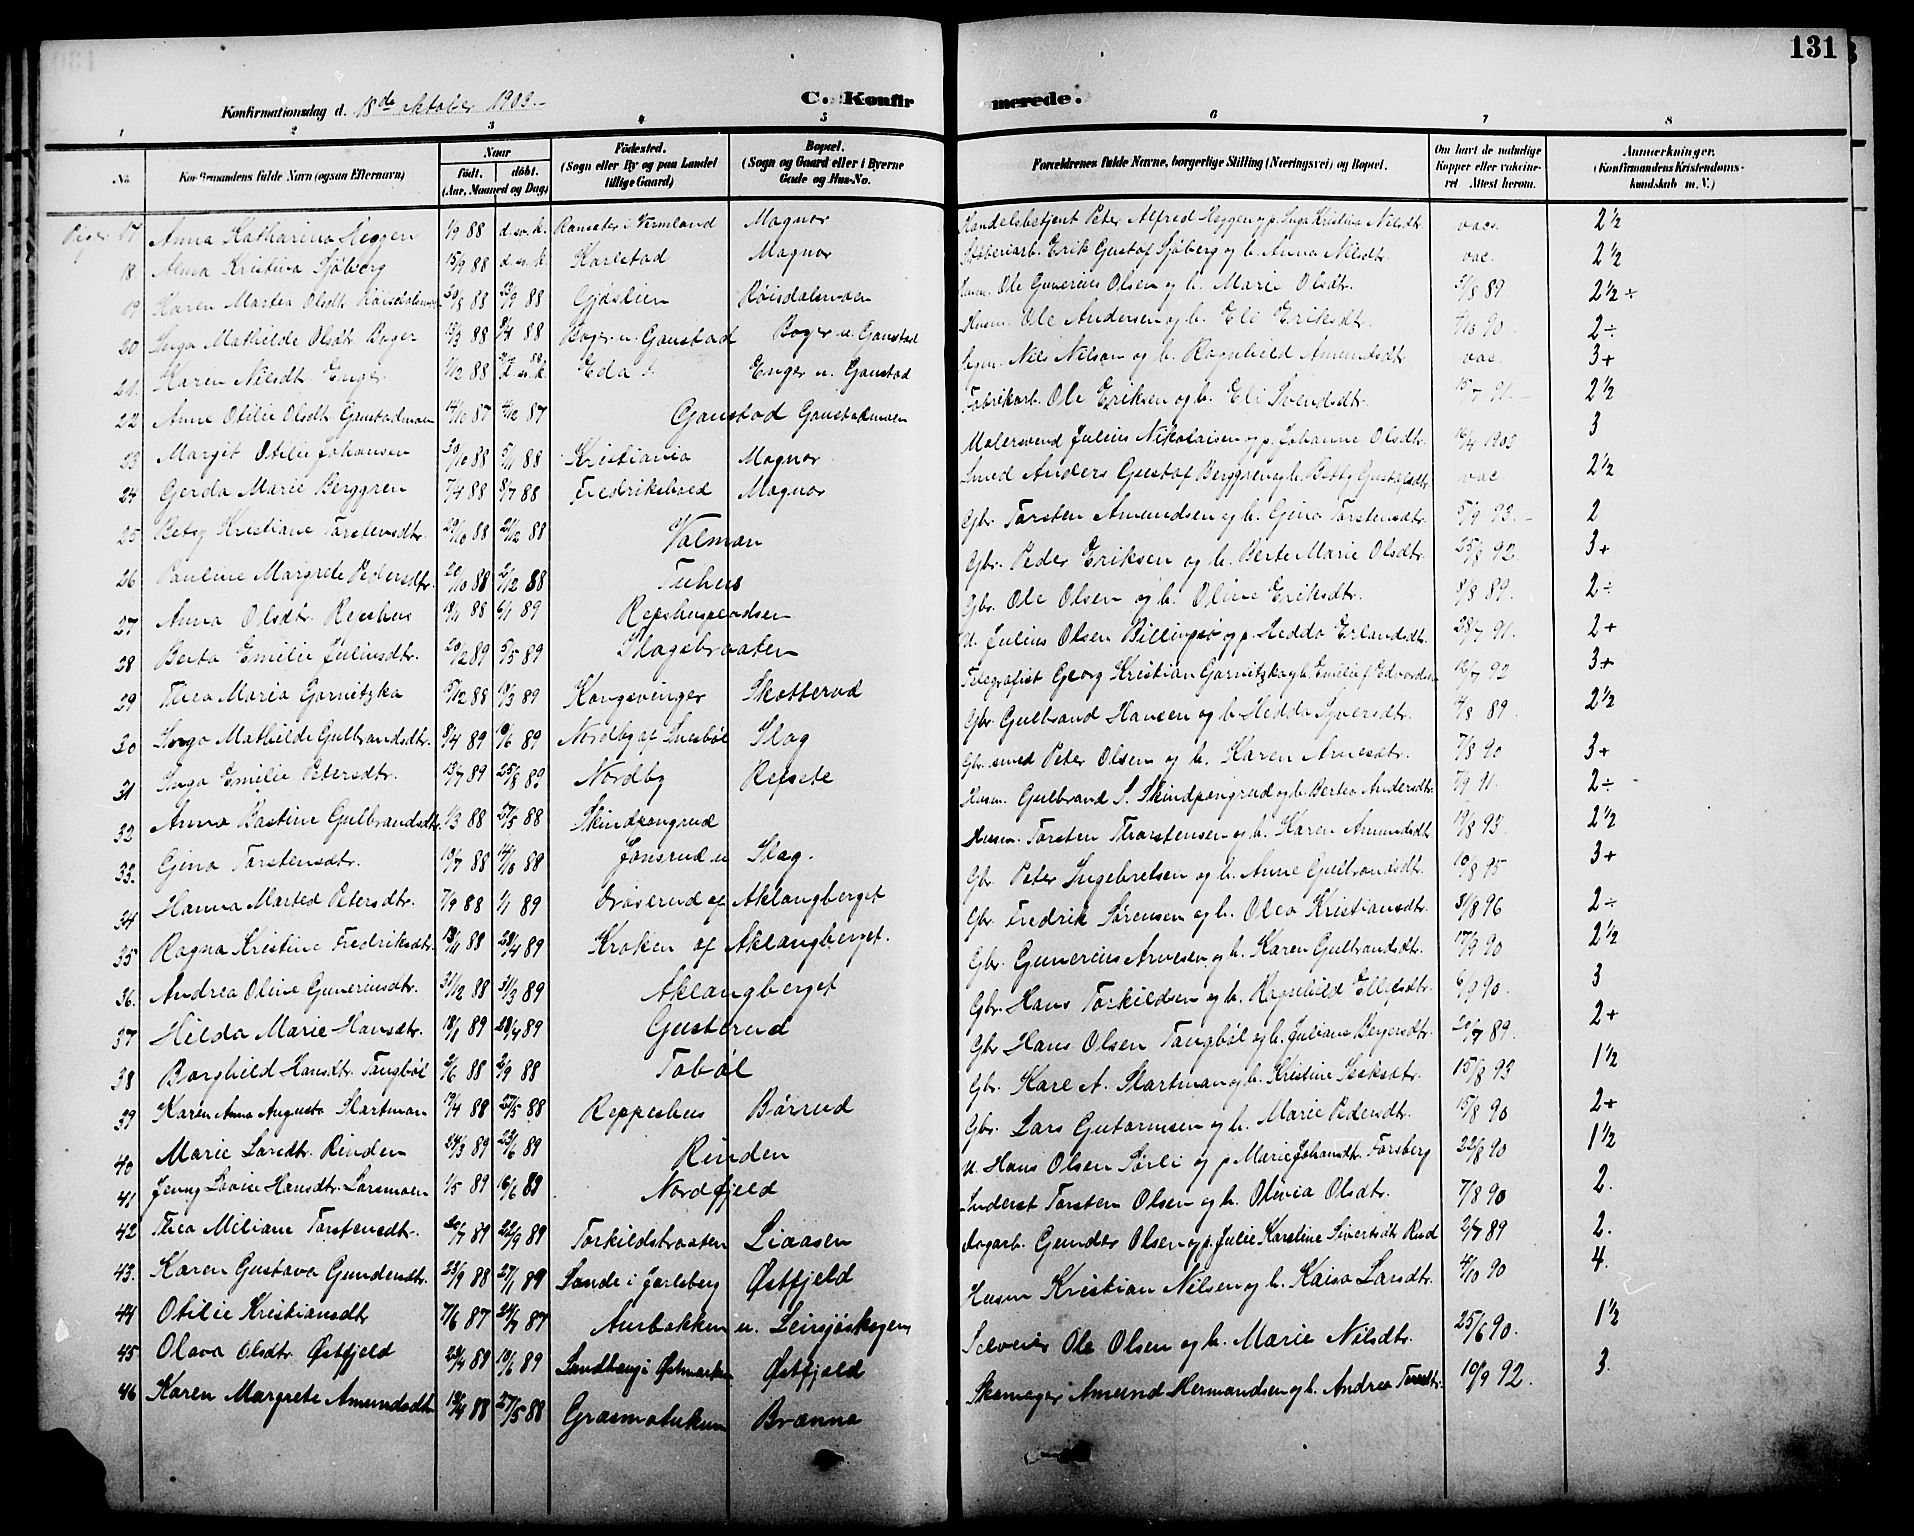 131
Konfirmationsdag d. 18de Oktober 1903.
C. Konfirmerede.
1 2 3 4 5 6 7 8
No. Konfirmandens fulde Navn (ogsaa Efternavn) Naar født. døbt. (Aar, Maaned og Dag) Fødested. (Sogn eller By og paa Landet tillige Gaard) Bopæl. (Sogn og Gaard eller i Byerne Gade og Hus-No. Forældrenes fulde Navne, borgerlige Stilling (Næringsvei) og Bopæl. Om havt de naturlige Kopper eller vaksineret Attest herom. Anmærkninger. (Konfirmandens Kristendomskundskab m. V.)
Piger 17 Anna Katharina Heggen 1/9 88 d. sv. k. Ransater i Vermland Magnor Handelsbetjent Peter Alfred Heggen og p. Inga Kristina Nilsdtr. vac. 2½
18. Alma Kristina Sjøberg 15/9 88 d. sv. k. Karlstad Magnor Erik Gustaf Sjøberg og h. Anna Nilsdtr. vac. 2½
19 Karen Martea Olsdt. Røisdalsmoen 20/8 88 23/9 88 Gjøslien Røisdalsmoen Husm. Ole Gunerius Olsen og h. Marie Olsdtr. 31/8 89 2½ ÷
20 Inga Mathilde Olsdtr. Boger 13/3 88 8/4 88 Boger u. Gaustad Boger u. Gaustad Husm. Ole Andersen og h. Eli Eriksdtr. 4/10 90 2÷
21. Karin Nilsdtr. Enger 1/12 88 d. sv. k. Eda Enger u. Gaustad Nils Nilson og h. Ragnhild Amundsdtr. vac. 3+
22 Anne Otilie Olsdtr. Gaustadmoen 14/10 87 4/12 87 Gaustad Gaustadmoen Fabrikarb. Ole Eriksen og h. Eli Svendsdtr. 15/7 91. 2½
23 Margit Otilie Johansen 20/10 88 5/11 88 Kristiania Magnor Malersvend Julius Nikolaisen og p. Johanne Olsdtr. 16/4 1903 3
24 Gerda Marie Berggren 7/4 88 8/7 88 Fredrikshald Magnor Smed Anders Gustaf Berggren og h. Betty Gustafsdtr. vac. 2½
25 Betsy Kristiane Torstensdtr. 29/10 88 21/12 88 Valman Gbr. Torsten Amundsen og h. Gina Torstensdtr. 5/9 93. 2
26 Pauline Margrete Pedersdtr. 20/10 88 2/12 88 Tuhus Gbr. Peder Eriksen og h. Berte Marie Olsdtr. 25/8 92. 3+
27 Anna Olsdtr. Repshus 18/11 88 6/1 89 Repshuspladsen Gbr. Ole Olsen og h. Oline Eriksdtr. 8/8 89. 2÷
28 Berta Emilie Juliusdtr. 20/2 89 5/5 89 Slagebraaten U. Julius Olsen Billingsø og p. Hedda Erlandsdtr. 28/7 91. 2+
29 Thea Maria Garnitzka 5/12 88 10/3 89 Kongsvinger Skotterud Telegrafist Georg Kristian Garnitzka og h. Emilie f. Edvardsen 12/7 92 3+
30 Inga Mathilde Gulbrandsdtr. 8/4 89 9/6 89 Nordby af Snesbøl Slag Gbr. Gulbrand Hansen og h. Hedda Syversdtr. 4/8 89. 2½
31 Inga Emilie Petersdtr. 13/7 89 25/8 89 Nordby Repsete Gbr. smed Peter Olsen og h. Karen Arnesdtr. 7/8 90 3+
32 Anna Bastine Gulbrandsdtr. 1/3 88 27/5 88 Skindpongrud Husm. Gulbrand S. Skindpongrud og h. Bertea Andersdtr. 7/9 91. 2÷
33. Gina Torstensdtr. 10/7 88 14/10 88 Jonsrud u Slag. Husm. Torsten Thorstensen og h. Karen Amundsdtr. 19/8 93. 2½
34 Hanna Marted Petersdtr. 7/9 88 1/1 89 Drøverud af Aklangberget Gbr. Peter Ingebretsen og h. Anne Gulbrandsdtr. 10/8 95 3+
35 Ragna Kristine Fredriksdtr. 18/11 88 28/4 89 Kroken af Aklangberget. Gbr. Fredrik Sørensen og h. Olea Kristiansdtr. 31/8 96 2÷
36. Andrea Oline Guneriusdtr. 31/12 88 31/3 89 Aklangberget Gbr. Gunerius Arnesen og h. Karen Gulbrandsdtr. 17/9 90 2½
37 Hilda Marie Hansdtr. 18/1 89 28/4 89 Gusterud Gbr. Hans Torkildsen og h. Ragnhild Ellefsdtr. 6/9 90. 3
38 Borghild Hansdtr. Tangbøl 2/6 88 2/9 88 Tobøl Gbr. Hans Olsen Tangbøl og h. Juliane Bergersdtr. 20/7 89. 2+
39 Karen Anna Augusta Slartman 19/4 88 27/5 88 Reppeshus Børrud Gbr. Karl A. Slartman og h. Kristine Isaksdtr. 15/8 93 1½
40 Marie Larsdtr. Rinden 24/3 89 23/6 89 Rinden Gbr. Lars Gutormsen og h. Marie Pedersdtr. 15/8 90 2+
41 Jenny Lovise Hansdtr. Larsmoen 1/5 89 16/6 89 Nordfjeld U. Hans Olsen Sørli og p Marie Johansdtr. Forsberg 22/8 90 1½
42 Thea Miliane Torstensdtr. 20/7 89 22/9 89 Torkildsbraaten Liaasen Inderst Torsten Olsen og h. Olivia Olsdtr. 7/8 90 2.
43. Karen Gustava Gundersdtr. 23/9 88 27/1 89 Sande i Jarlsberg Østfjeld Dagarb. Gunder Olsen og p. Julie Karoline Sivertsdtr Rud 2/7 89 2.
44 Otilie Kristiansdtr 7/6 87 24/7 87 Aurbakken u. Leirsjøskogen Husm Kristian Nilsen og h. Kaisa Larsdtr. 4/10 90 4.
45 Olava Olsdtr. Østfjeld 28/4 89 16/6 89 Sandhaug i Østmarken Østfjeld Selveier Ole Olsen og h. Marie Nilsdtr. 25/6 90. 1½
46 Karen Margrete Amundsdtr 19/4 88 27/5 88 Græsmotukun Brænna Skomager Amund Hermandsen og h. Andrea 10/9 92. 3.